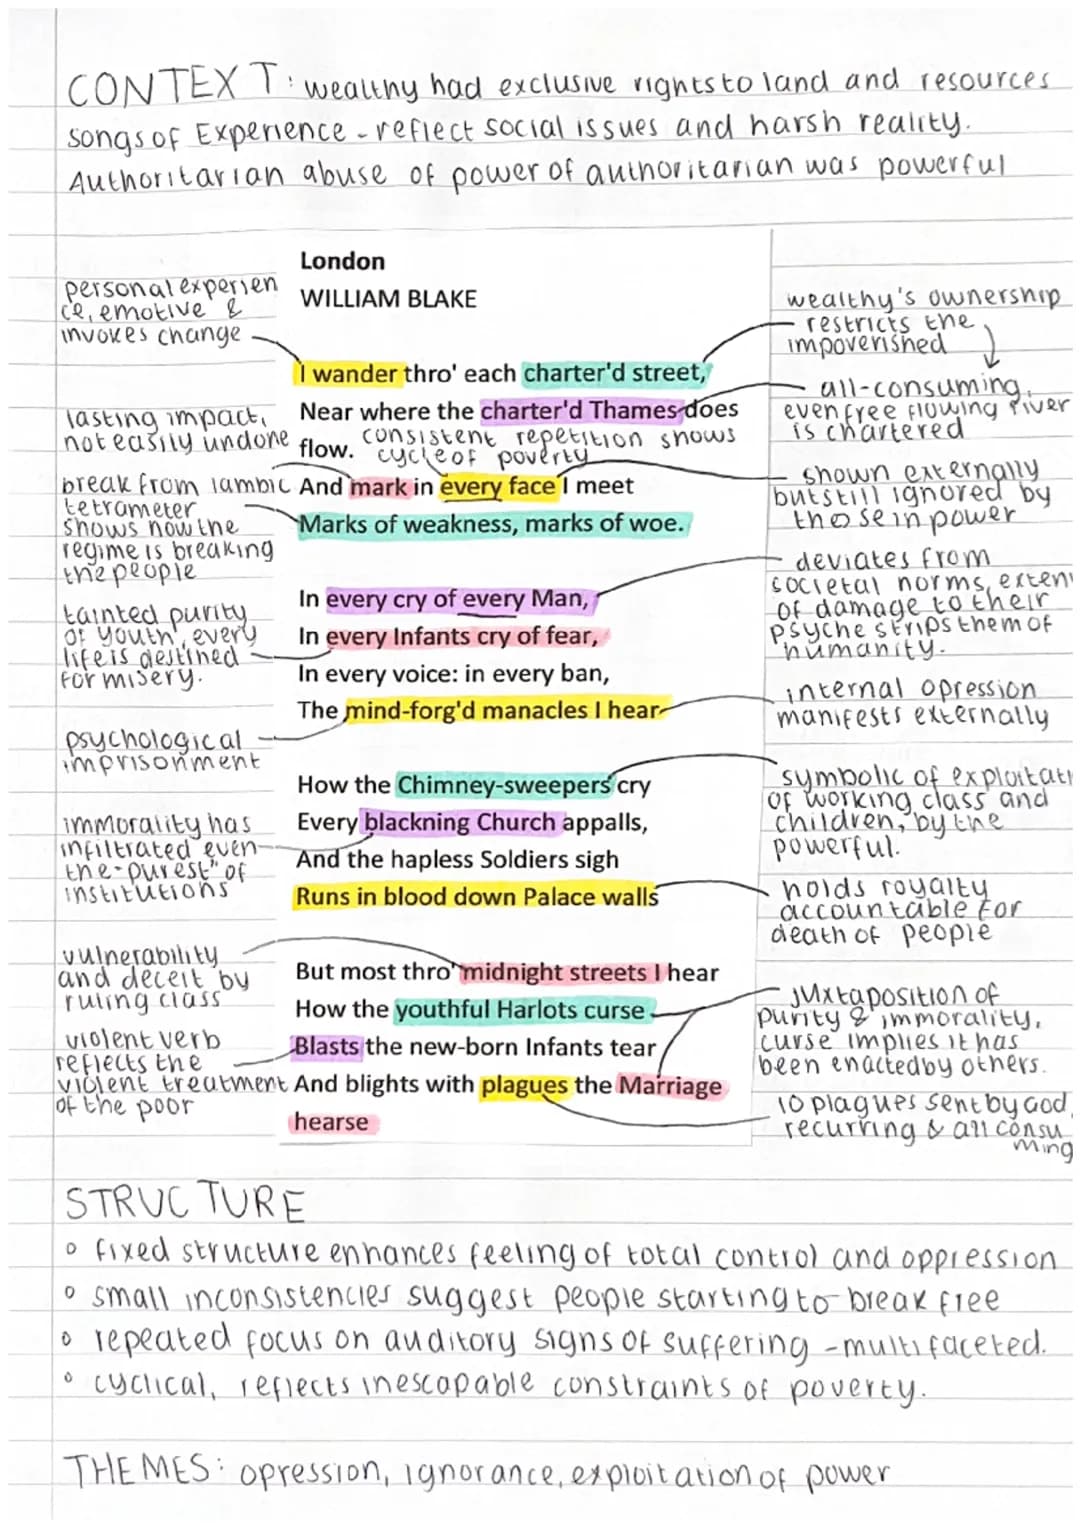 CONTEXT: wealthy had exclusive rights to land and resources
songs of Experience - reflect social issues and harsh reality.
Authoritarian abuse of power of authoritarian was powerful
London
WILLIAM BLAKE
personal experien
ce, emotive &
invokes change
wealthy's ownership
restricts the
impoverished
I wander thro' each charter'd street,
all-consuming,
even free flowing river
is chartered
lasting impact,
not easily undone
Near where the charter'd Thames does
flow.
consistent repetition shows
cycle of poverty
shown externally
but still ignored by
those in power
break from iambic
tetrameter
shows how the
regime is breaking
the people
And mark in every face I meet
Marks of weakness, marks of woe.
deviates from
societal norms, exten
of damage to their
psyche strips them of
humanity.
In every cry of every Man,
tainted purity
of youth, every
life is destined
for misery.
In every Infants cry of fear,
In every voice: in every ban,
The mind-forg'd manacles I hear
internal opression
manifests externally
psychological
imprisonment
How the Chimney-sweepers cry
symbolic of exploitati
of working class and
children, by the
powerful.
immorality has
infiltrated even
the "purest" of
institutions
Every blackning Church appalls,
And the hapless Soldiers sigh
Runs in blood down Palace walls
holds royalty
accountable for
death of people
vulnerability
and deceit by
ruling class
But most thro' midnight streets I hear
How the youthful Harlots curse
juxtaposition of
purity & immorality,
curse implies it has
been enacted by others.
violent verb
reflects the
violent treatment
of the poor
Blasts the new-born Infants tear
And blights with plagues the Marriage
hearse
10 plagues sent by God,
recurring & all consu
ming
STRUCTURE
o fixed structure enhances feeling of total control and oppression
o small inconsistencies suggest people starting to break free
o repeated focus on auditory signs of suffering - multifaceted.
o cyclical, reflects inescapable constraints of poverty.
THEMES: opression, ignorance, exploitation of power